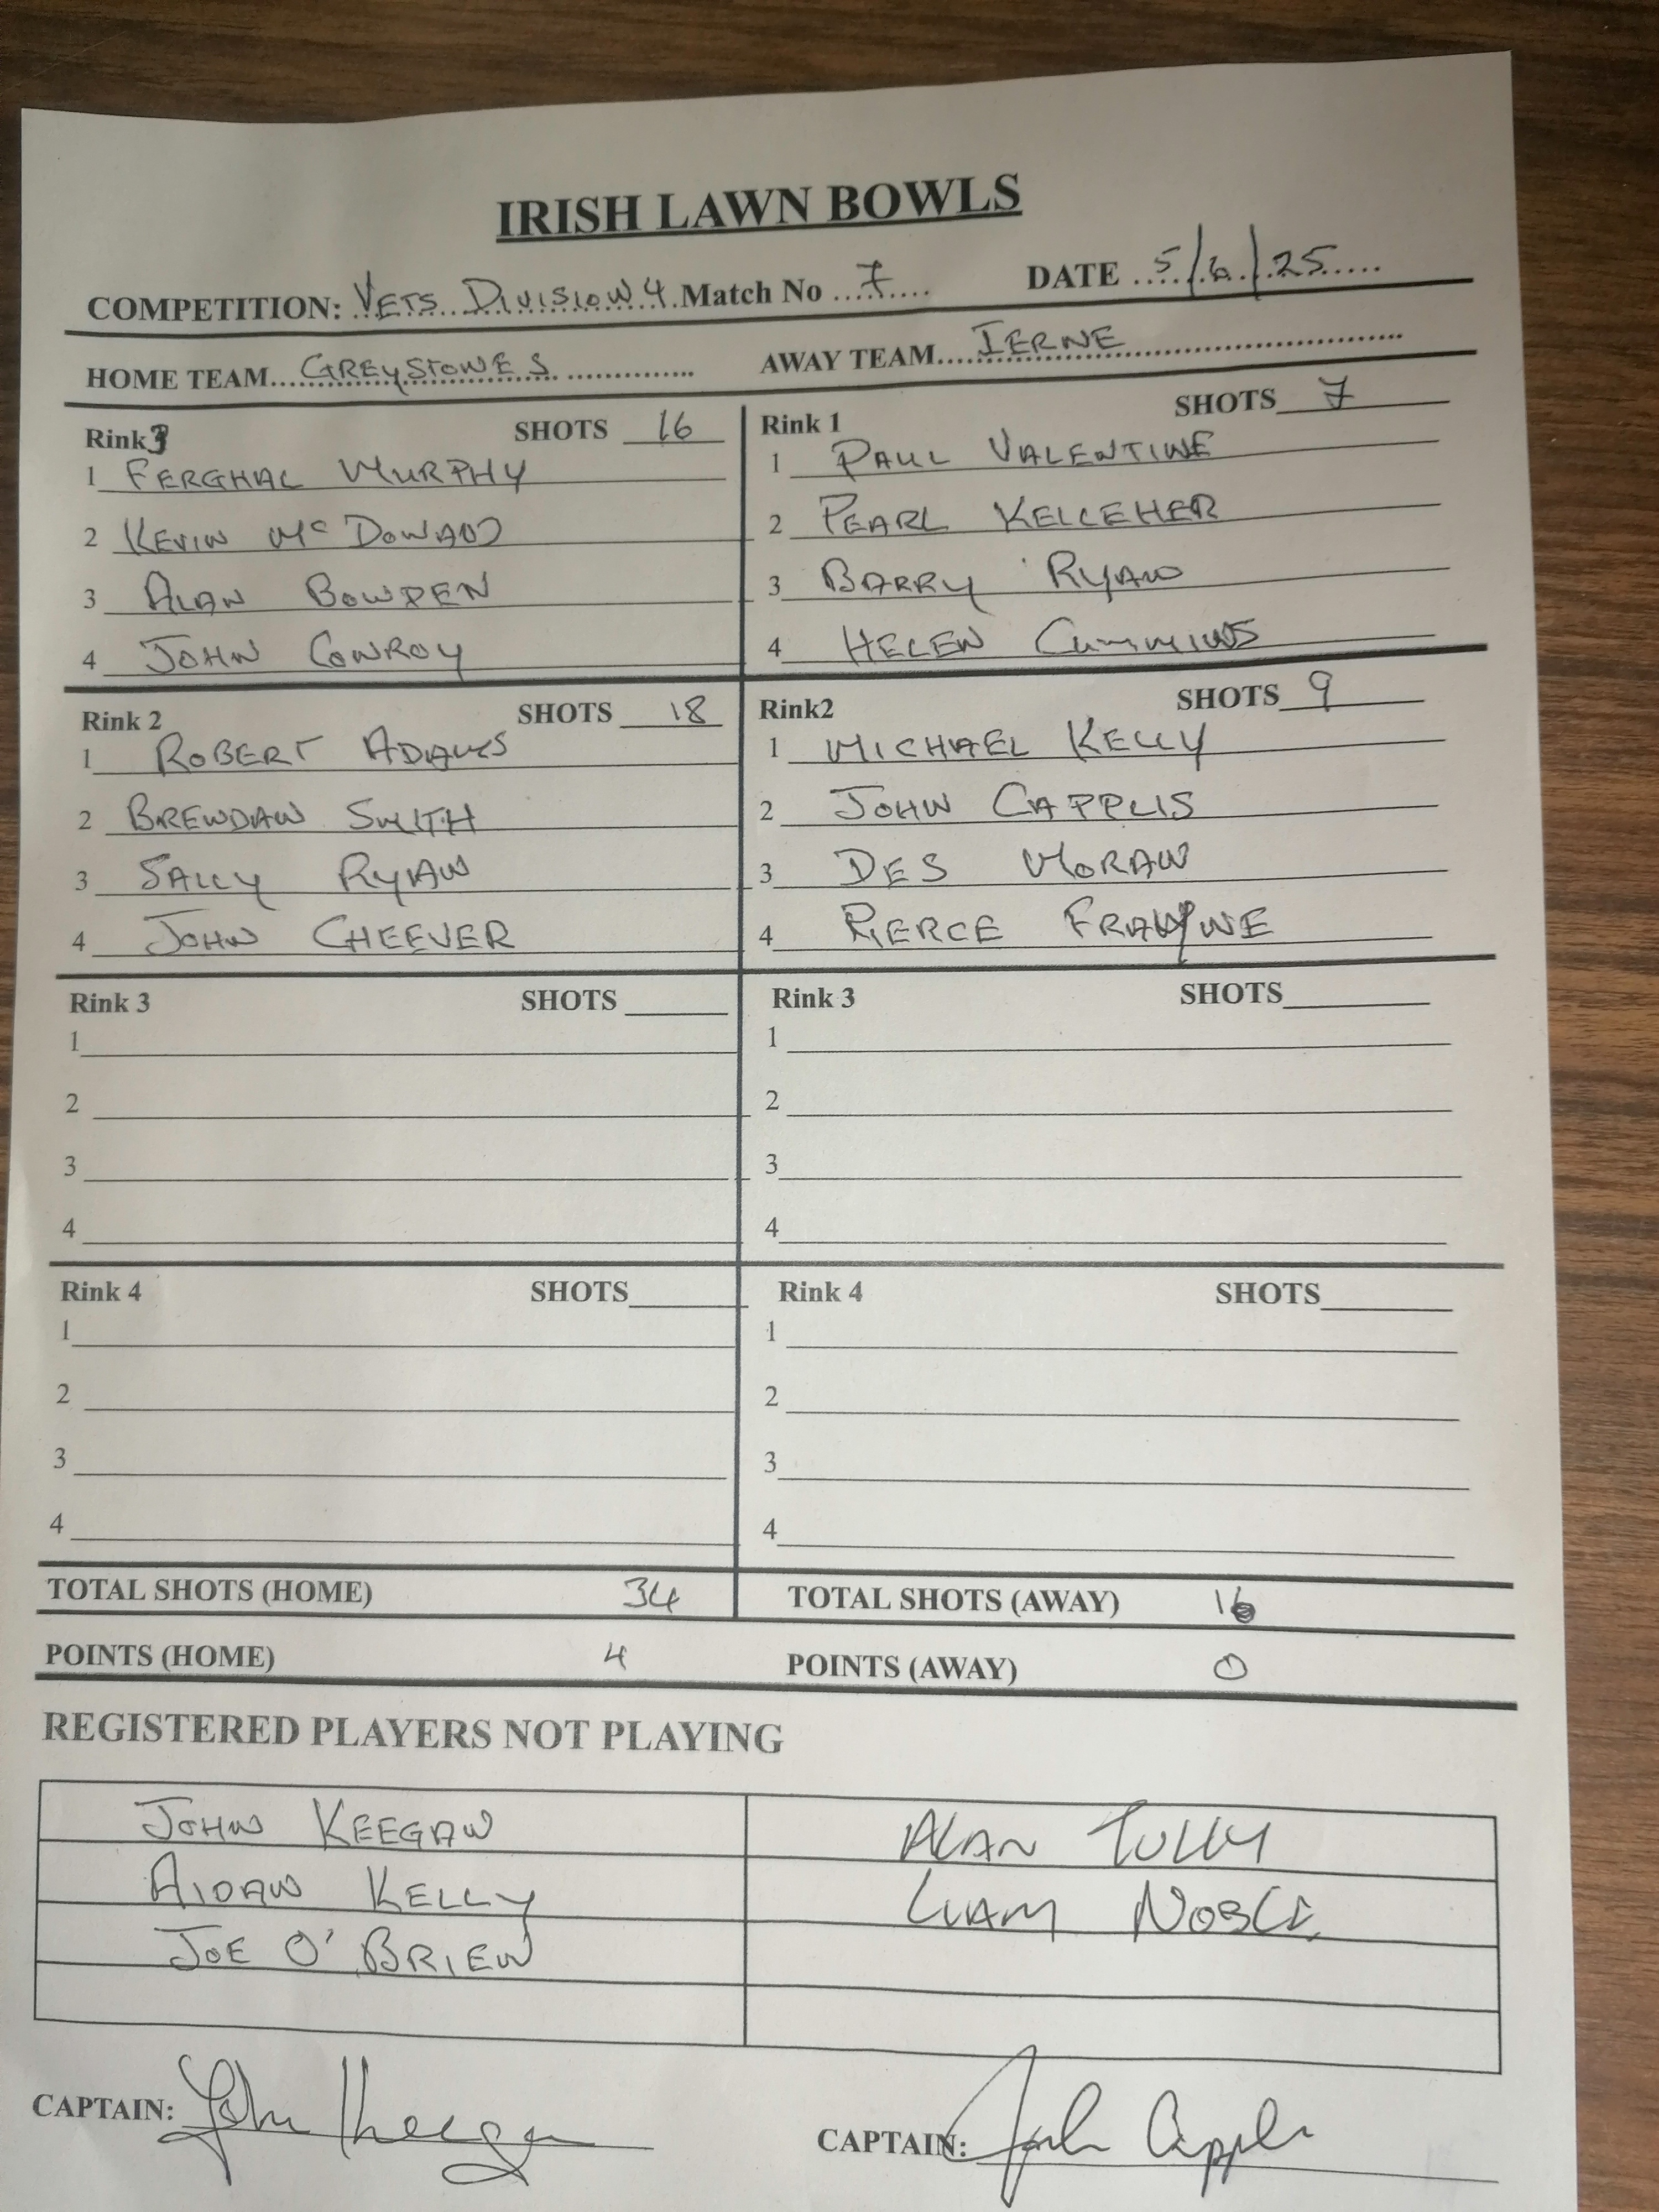 IRISH LAWN BOWLS
COMPETITION: VETS DIVISION 4 Match No 7 DATE 5/6/25
HOME TEAM GREYSTONES AWAY TEAM IERNE
Rink 3 SHOTS 16
1 FERGHAL MURPHY
2 KEVIN Mc
3 ALAN BOWDEN
4 JOHN CONROY
Rink 1 SHOTS 7
1 PAUL VALENTINE
2 PEARL KELLEHER
3 BARRY RYAN
4 HELEN CUMMINS
Rink 2 SHOTS 18
1 ROBERT ADAMS
2 BRENDAN SMITH
3 SALLY RYAN
4 JOHN CHEEVER
Rink2 SHOTS 9
1 MICHAEL KELLY
2 JOHN CAPPLIS
3 DES MORAN
4 PIERCE
Rink 3 SHOTS
1
2
3
4
Rink 3 SHOTS
1
2
3
4
Rink 4 SHOTS
1
2
3
4
Rink 4 SHOTS
1
2
3
4
TOTAL SHOTS (HOME) 34 TOTAL SHOTS (AWAY) 16
POINTS (HOME) 4 POINTS (AWAY) 0
REGISTERED PLAYERS NOT PLAYING
JOHN KEEGAN ALAN TULLY
AIDAN KELLY LIAM NOBLE
JOE O'BRIEN
CAPTAIN: John Keegan CAPTAIN: John